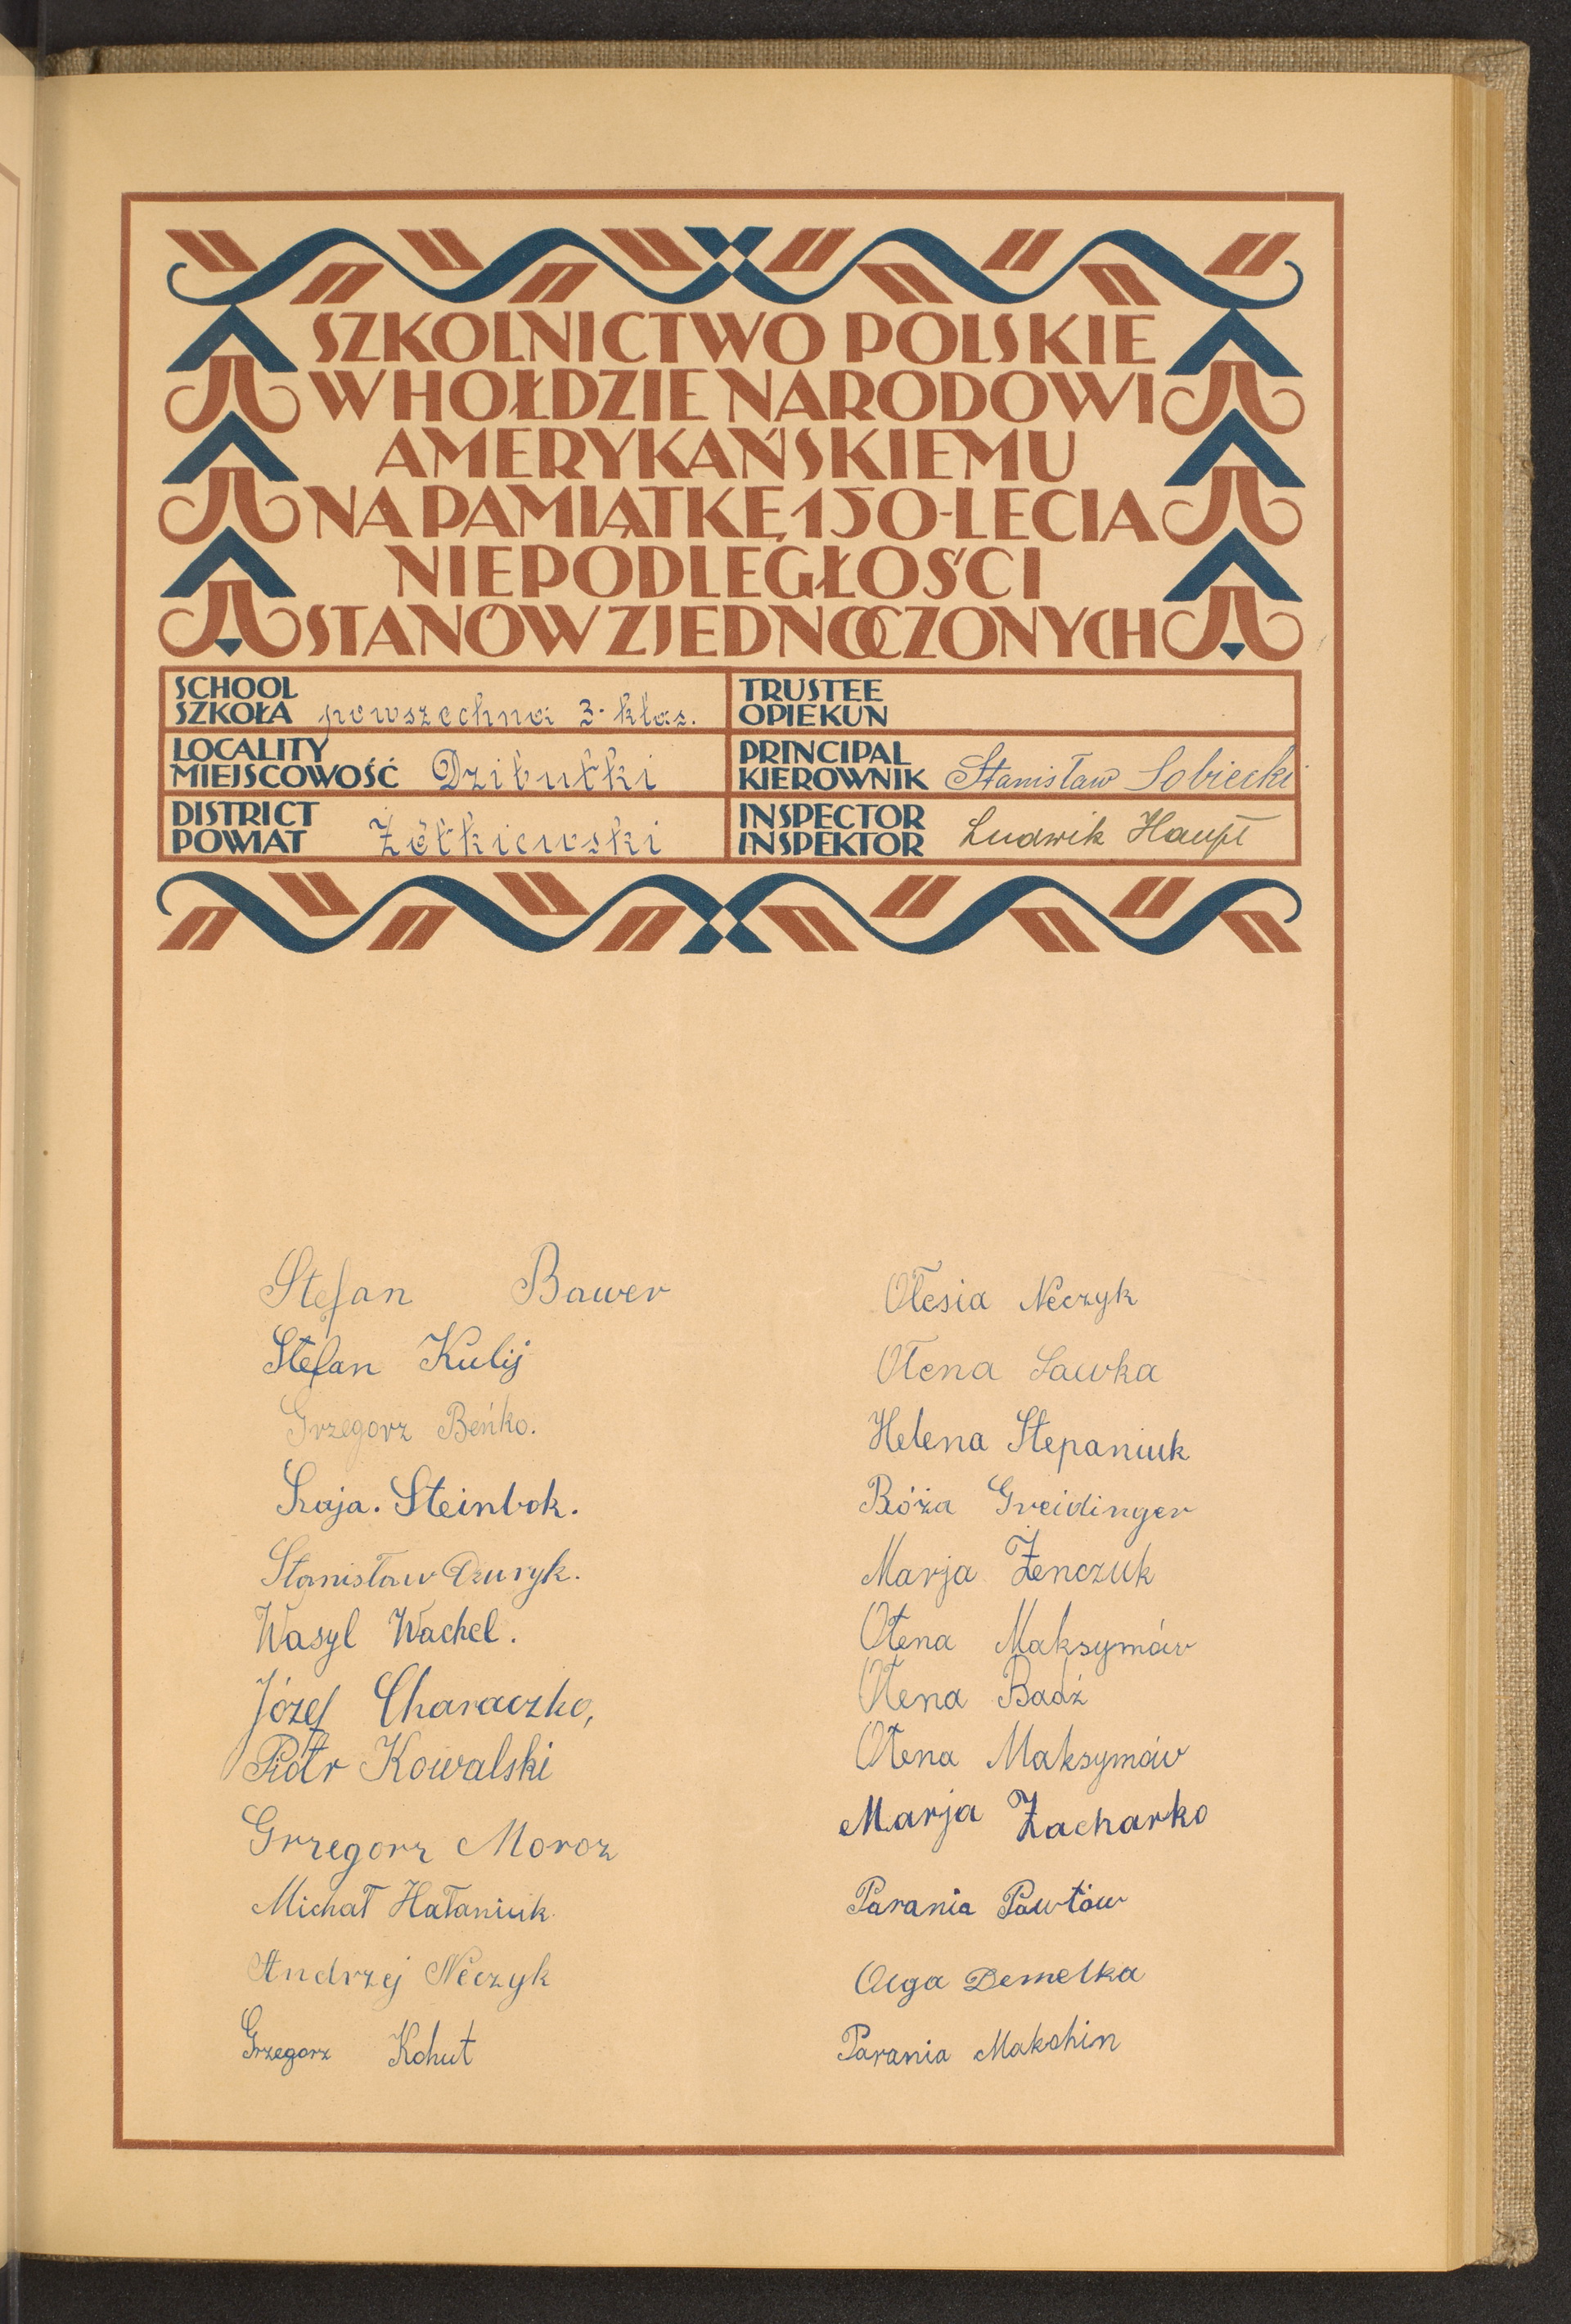 SZKOLNICTWO POLSKIE
W HOŁDZIE NARODOWI
AMERYKAŃSKIEMU
NA PAMIĄTKĘ 150-LECIA
NIEPODLEGŁOŚCI
STANÓW ZJEDNOCZONYCH
SCHOOL
SZKOŁA powszechna 3-klas.
TRUSTEE
OPIEKUN
LOCALITY
MIEJSCOWOŚĆ Dzibułki
PRINCIPAL
KIEROWNIK Stanisław Sobiecki
DISTRICT
POWIAT Żółkiewski
INSPECTOR
INSPEKTOR Ludwik Haupt
Stefan Bawer
Stefan Kulij
Grzegorz Beńko.
Szaja. Steinbok.
Stanisław Dzuryk.
Wasyl Wachel.
Józef Characzko,
Piotr Kowalski
Grzegorz Moroz
Michał Hałaniuk.
Andrzej Neczyk
Grzegorz Kohut
Ołesia Neczyk
Ołena Sawka
Helena Stepaniuk
Róża Greidinger
Marja Żenczuk
Ołena Maksymów
Ołena Badź
Ołena Maksymów
Marja Zacharko
Parania Pawłów
Olga Demelka
Parania Makohin